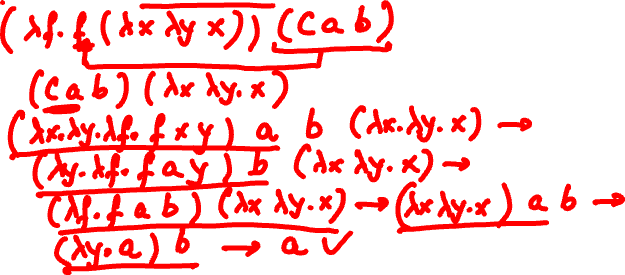 (λf. f (λx λy x)) (C a b)
(C a b) (λx λy. x)
(λx. λy. λf. f x y) a b (λx. λy. x) →
(λy. λf. f a y) b (λx λy. x) →
(λf. f a b) (λx λy. x) → (λx λy. x) a b →
(λy. a) b → a ✓